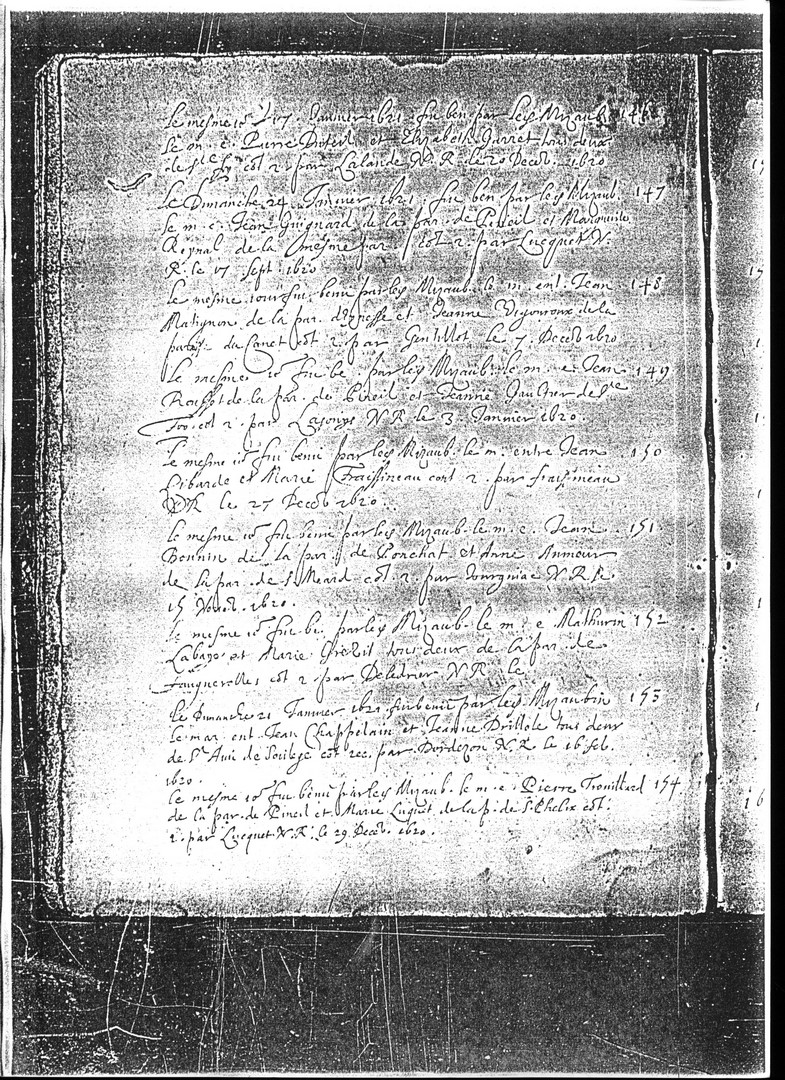 Le mesme jo. 17. Janvier 1621. fu ben par le sr Mizaub. 146
le m. e. Pierre et Elizabeth Garret tous deux
de Ste cot r. par Lalande N. R. le 20 Decem. 1620
Le Dimanche 24 Janvier 1621. fu ben par le sr Mizaub. 147
le m. e. Jean Guignard de la par. de Pineil et Marguerite
Reynal de la mesme par. cot r. par Lucquet N.
R. le 17 Sept. 1620
Le mesme jour fu. beni par le sr Mizaub. le m. ent. Jean 148
Matignon de la par. et Jeanne Vigouroux de la
par. du Canet cot r. par Gentillot le 7. Decem 1620
Le mesme jo. fu be. par le sr Mizaub. le m. e Jean 149
Roussot de la par. de Pineil et Jeanne Gaultier de Ste
Foy cot r. par N. R. le 3. Janvier 1620.
Le mesme jo. fu beni par le sr Mizaub. le m. entre Jean 150
Libarde et Marie Fraissineau cont r. par fraissineau
N. R. le 27 Decem 1620.
Le mesme jo. fu beni par le sr Mizaub. le m. e. Jean 151
Bonnin de la par. de Ponchat et Anne Aumour
de la par. de St Meard cot. r. par Jourgniac N. R. le
15 Novem. 1620.
Le mesme jo. fu be. par le sr Mizaub. le m. e Mathurin 152
Labaye et Marie Grezil tous deux de la par. de
Fougueyrolles cot r. par N. R. le
Le Dimanche 21 Janvier 1621 fu beni par le sr Mizaubin 153
le mar. ent. Jean Chappelain et Jeanne Drillole tous deux
de St Avit de Soulege cot rec. par Bordezon N. R. le 16 feb.
1620.
Le mesme jo. fu beni par le sr Mizaub. le m. e. Pierre Trouillard 154
de la par. de Pineil et Marie Luquet de la p. de St Phelix cot.
r. par Lucquet N. R. le 29 Decem. 1620.